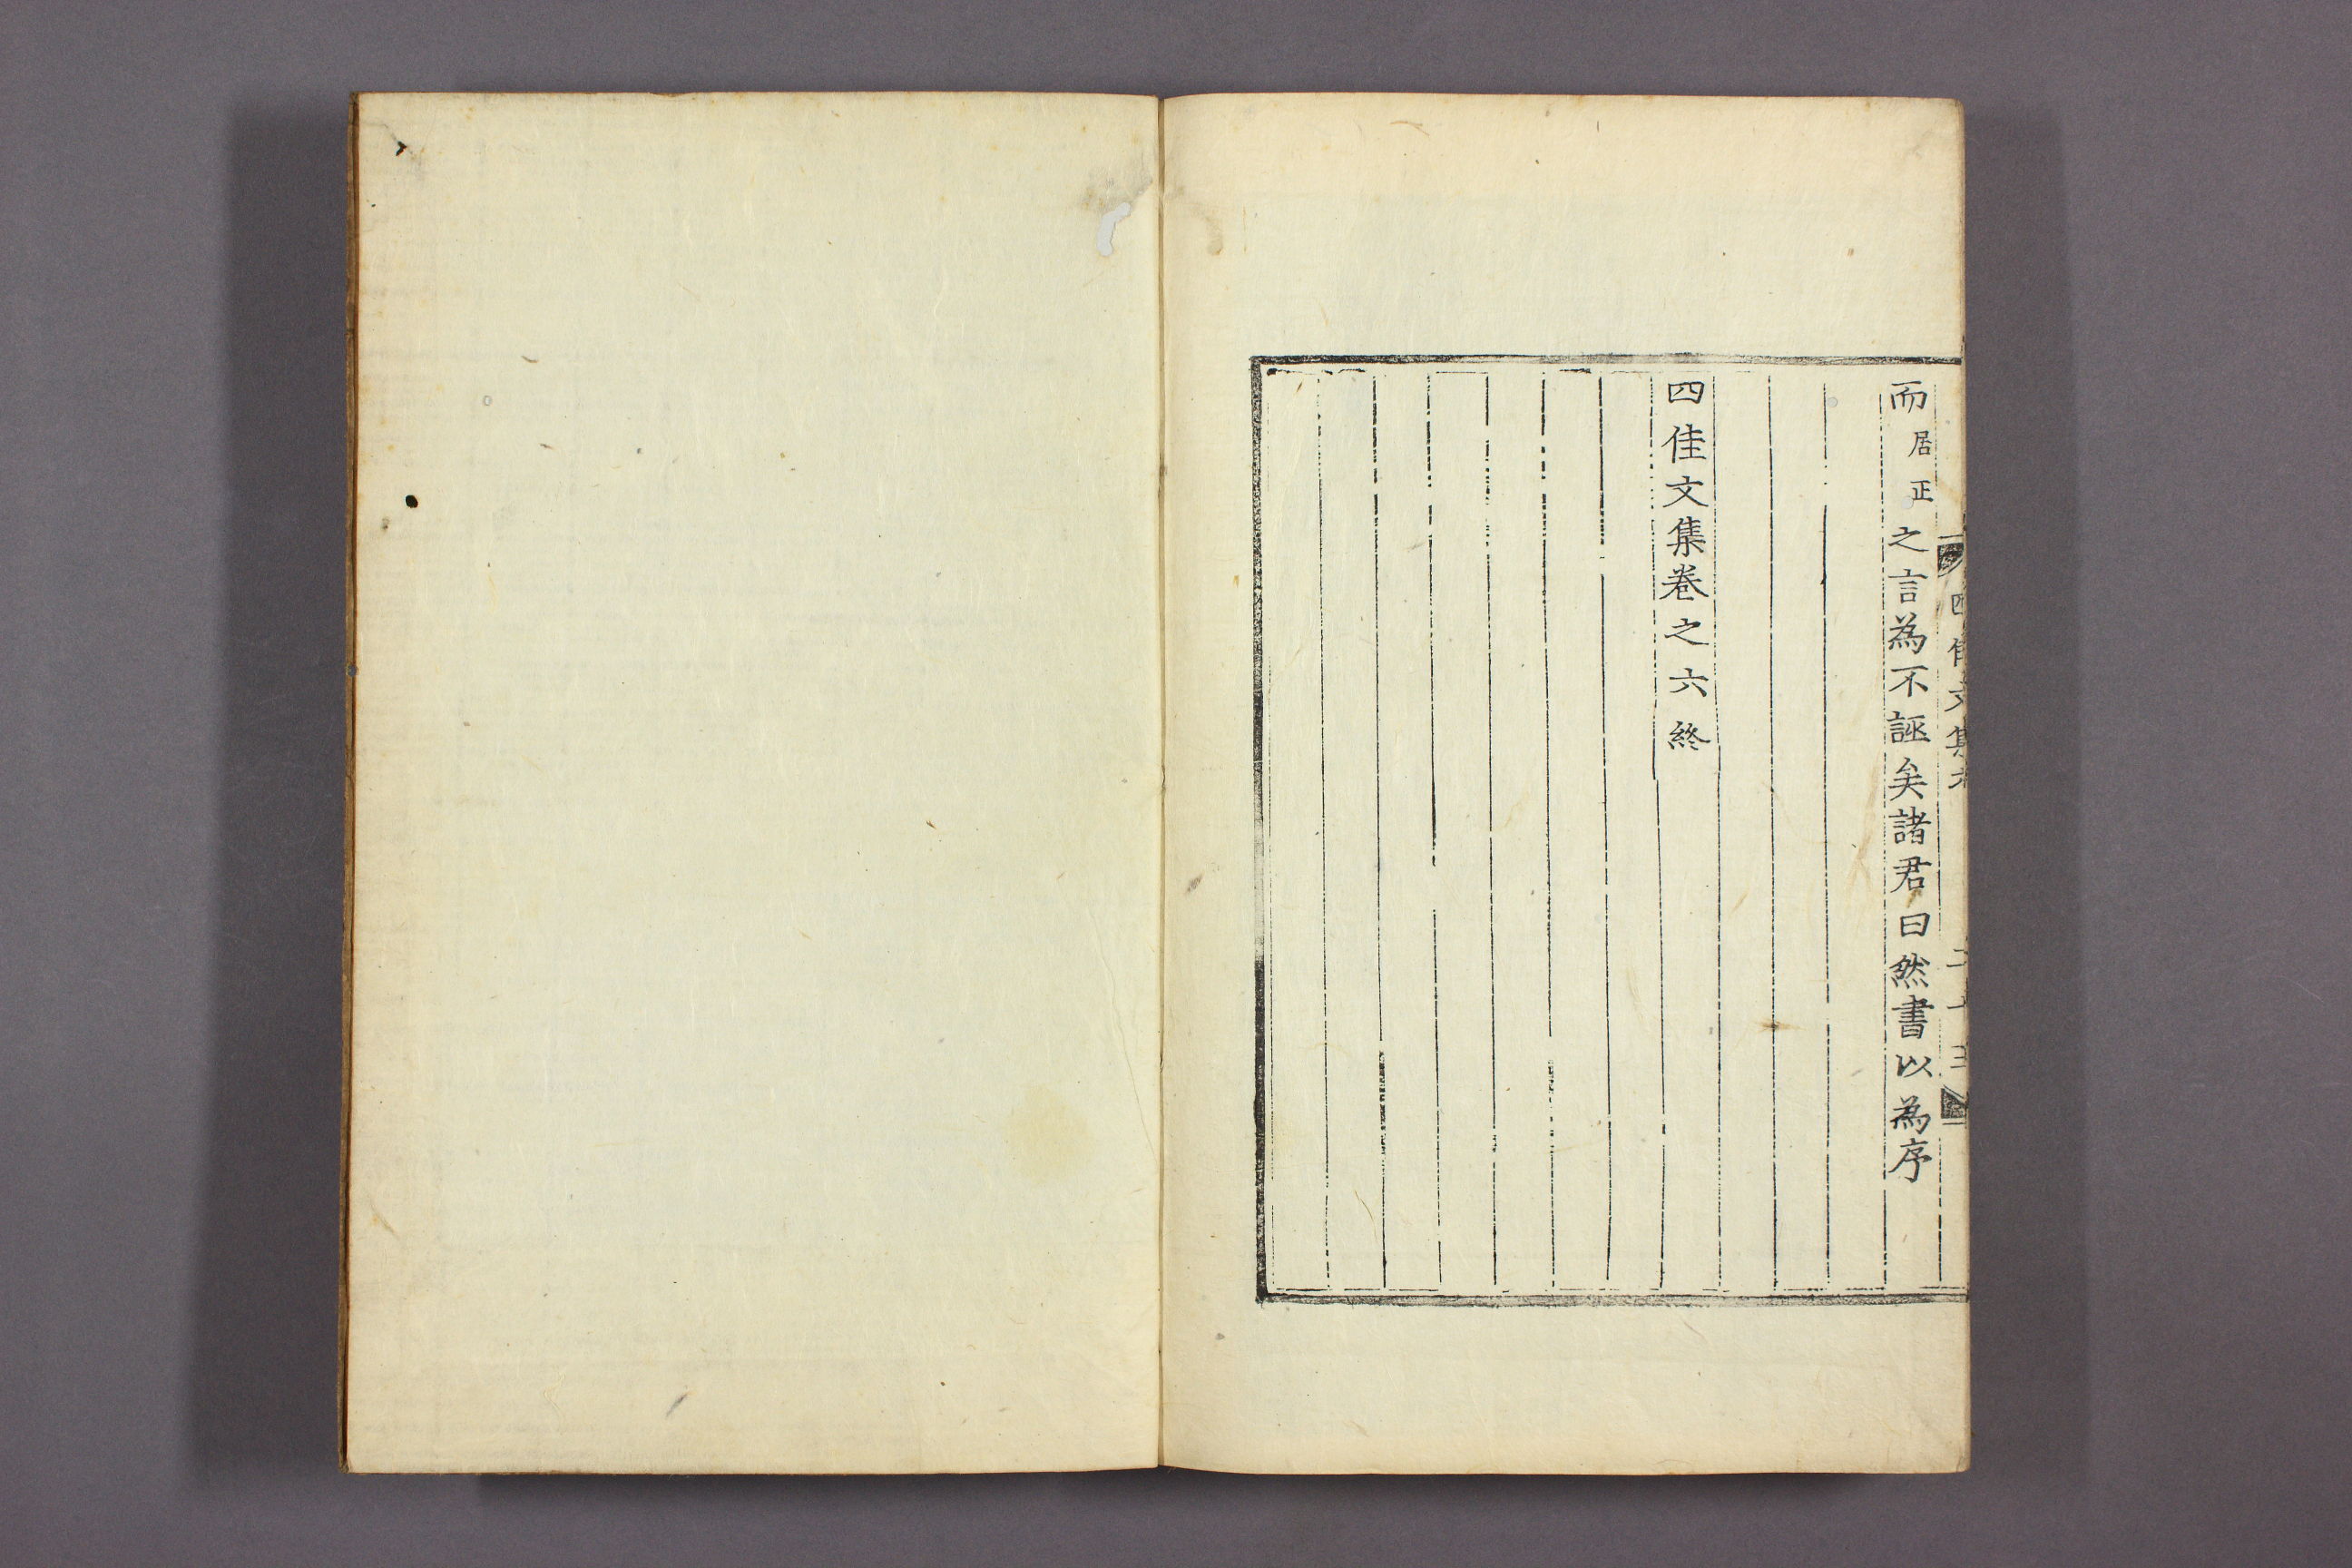 四佳文集六 二十五
而居正之言為不誣矣諸君曰然書以為序
四佳文集卷之六終